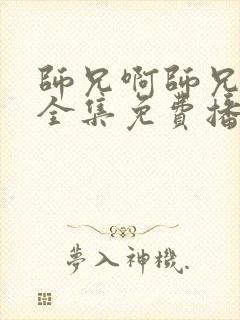 師兄啊師兄
全集免費播
夢入神機.